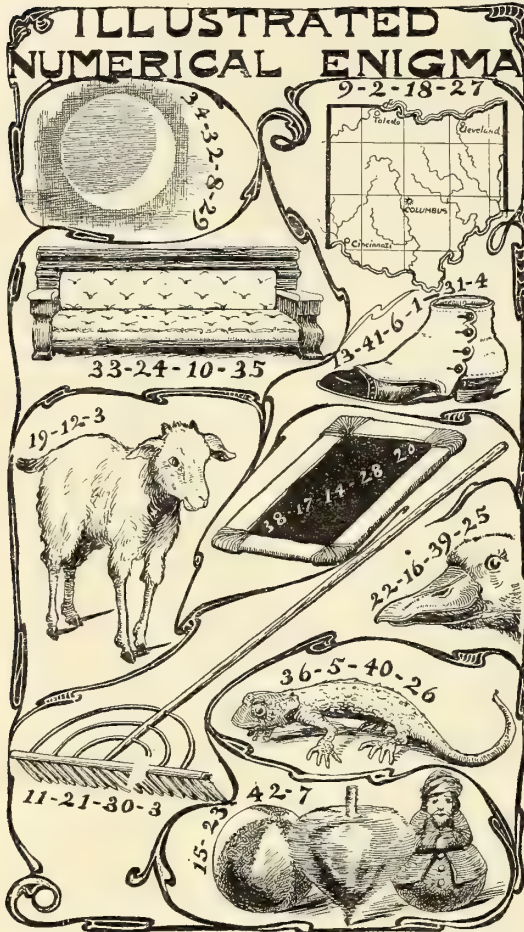 ILLUSTRATED
NUMERICAL ENIGMA
34-32-8-29
9-2-18-27
Toledo
Cleveland
COLUMBUS
Cincinnati
33-24-10-35
13-41-6-1-31-4
19-12-3
38-17-14-28-20
22-16-39-25
36-5-40-26
11-21-30-3
15-23-42-7